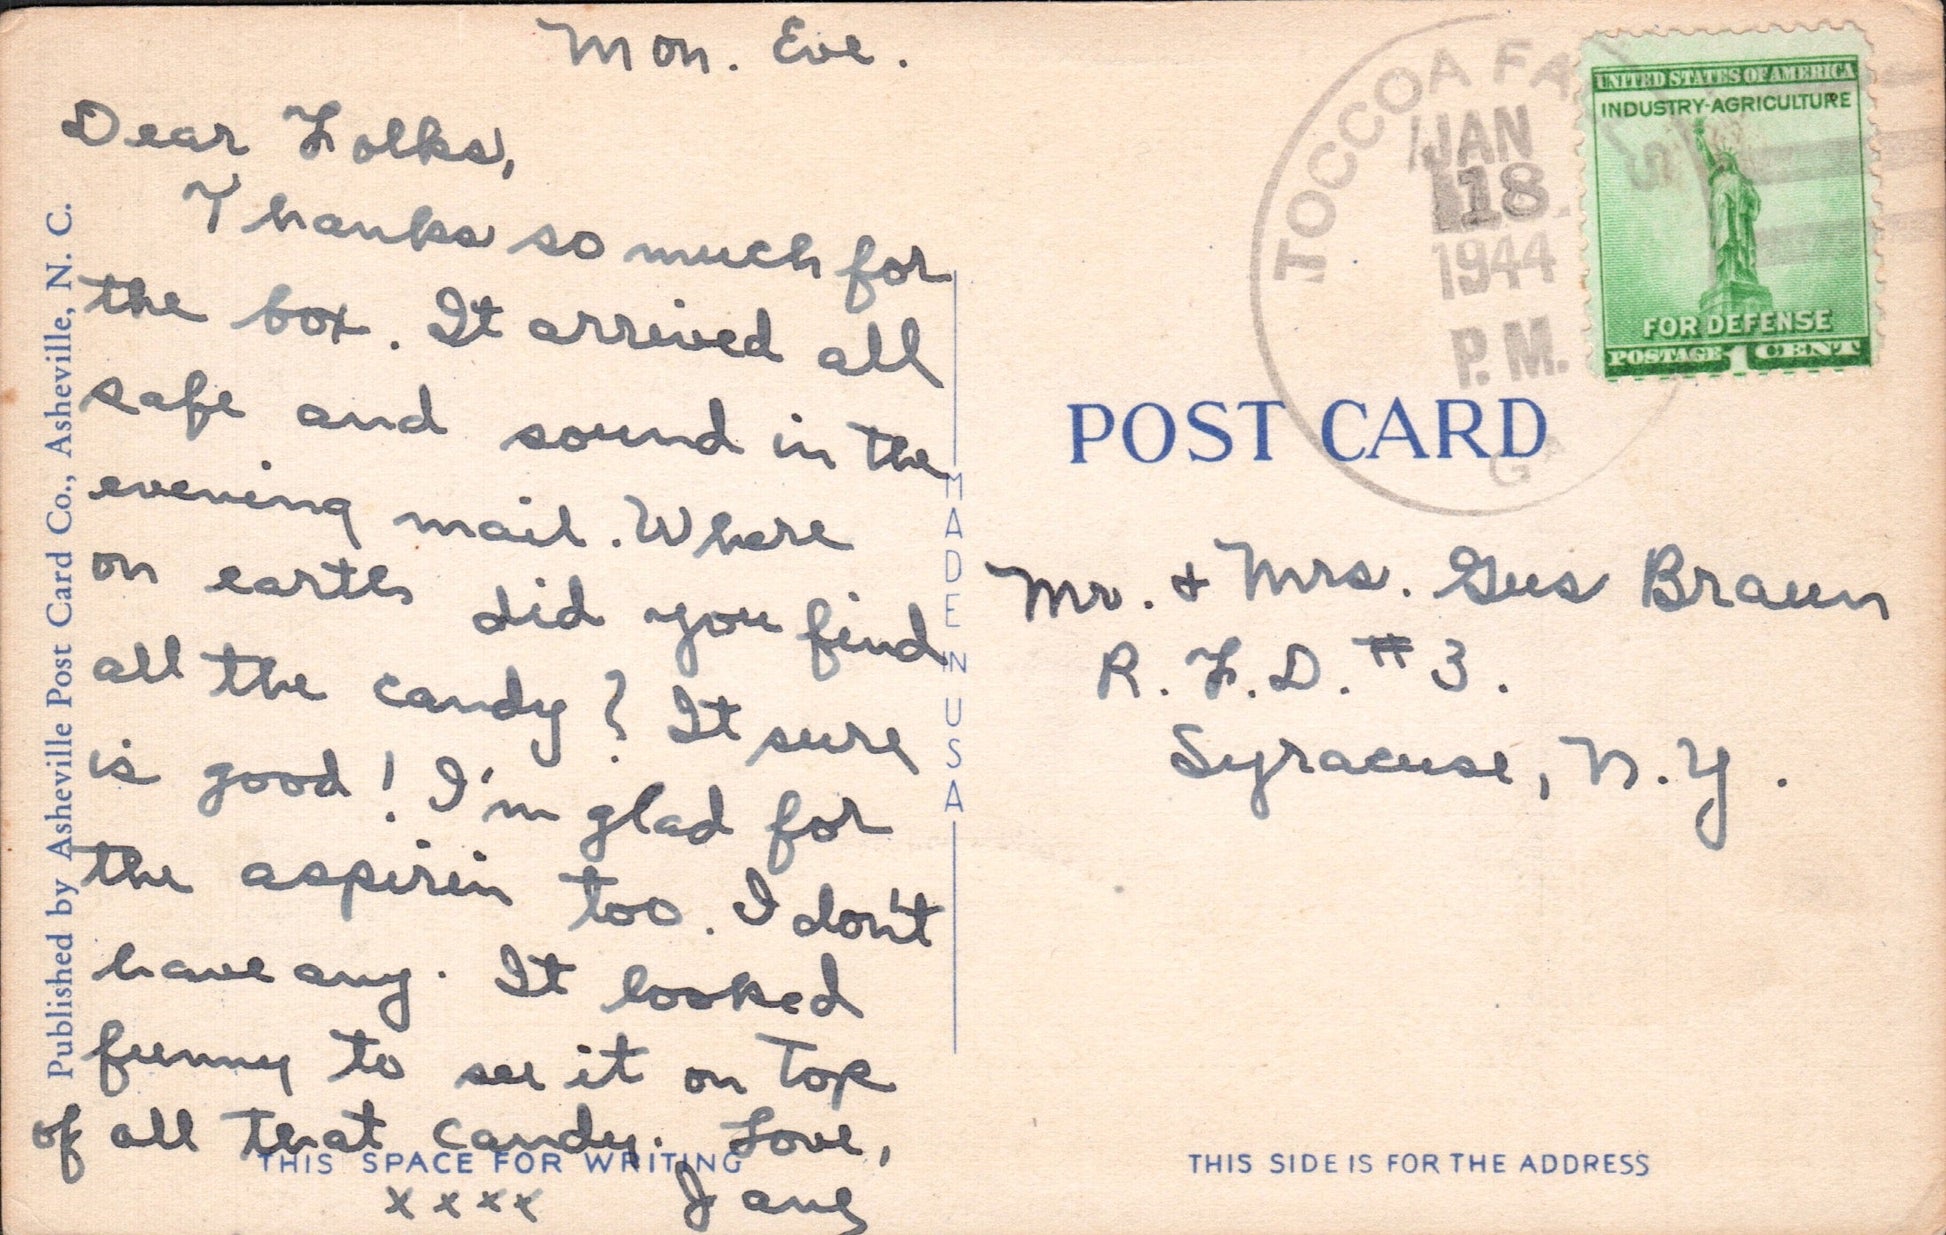 Mon. Eve.
Dear Folks,
Thanks so much for
the box. It arrived all
safe and sound in the
evening mail. Where
on earth did you find
all the candy? It sure
is good! I'm glad for
the aspirin too. I don't
have any. It looked
funny to see it on top
of all that candy. Love,
xxxx Jane
THIS SPACE FOR WRITING
Published by Asheville Post Card Co., Asheville, N. C.
MADE IN USA
TOCCOA FA S
JAN
18
1944
P. M.
GA
UNITED STATES OF AMERICA
INDUSTRY-AGRICULTURE
FOR DEFENSE
POSTAGE 1 CENT
POST CARD
Mr. & Mrs. Gus Braun
R. F. D. #3.
Syracuse, N. Y.
THIS SIDE IS FOR THE ADDRESS